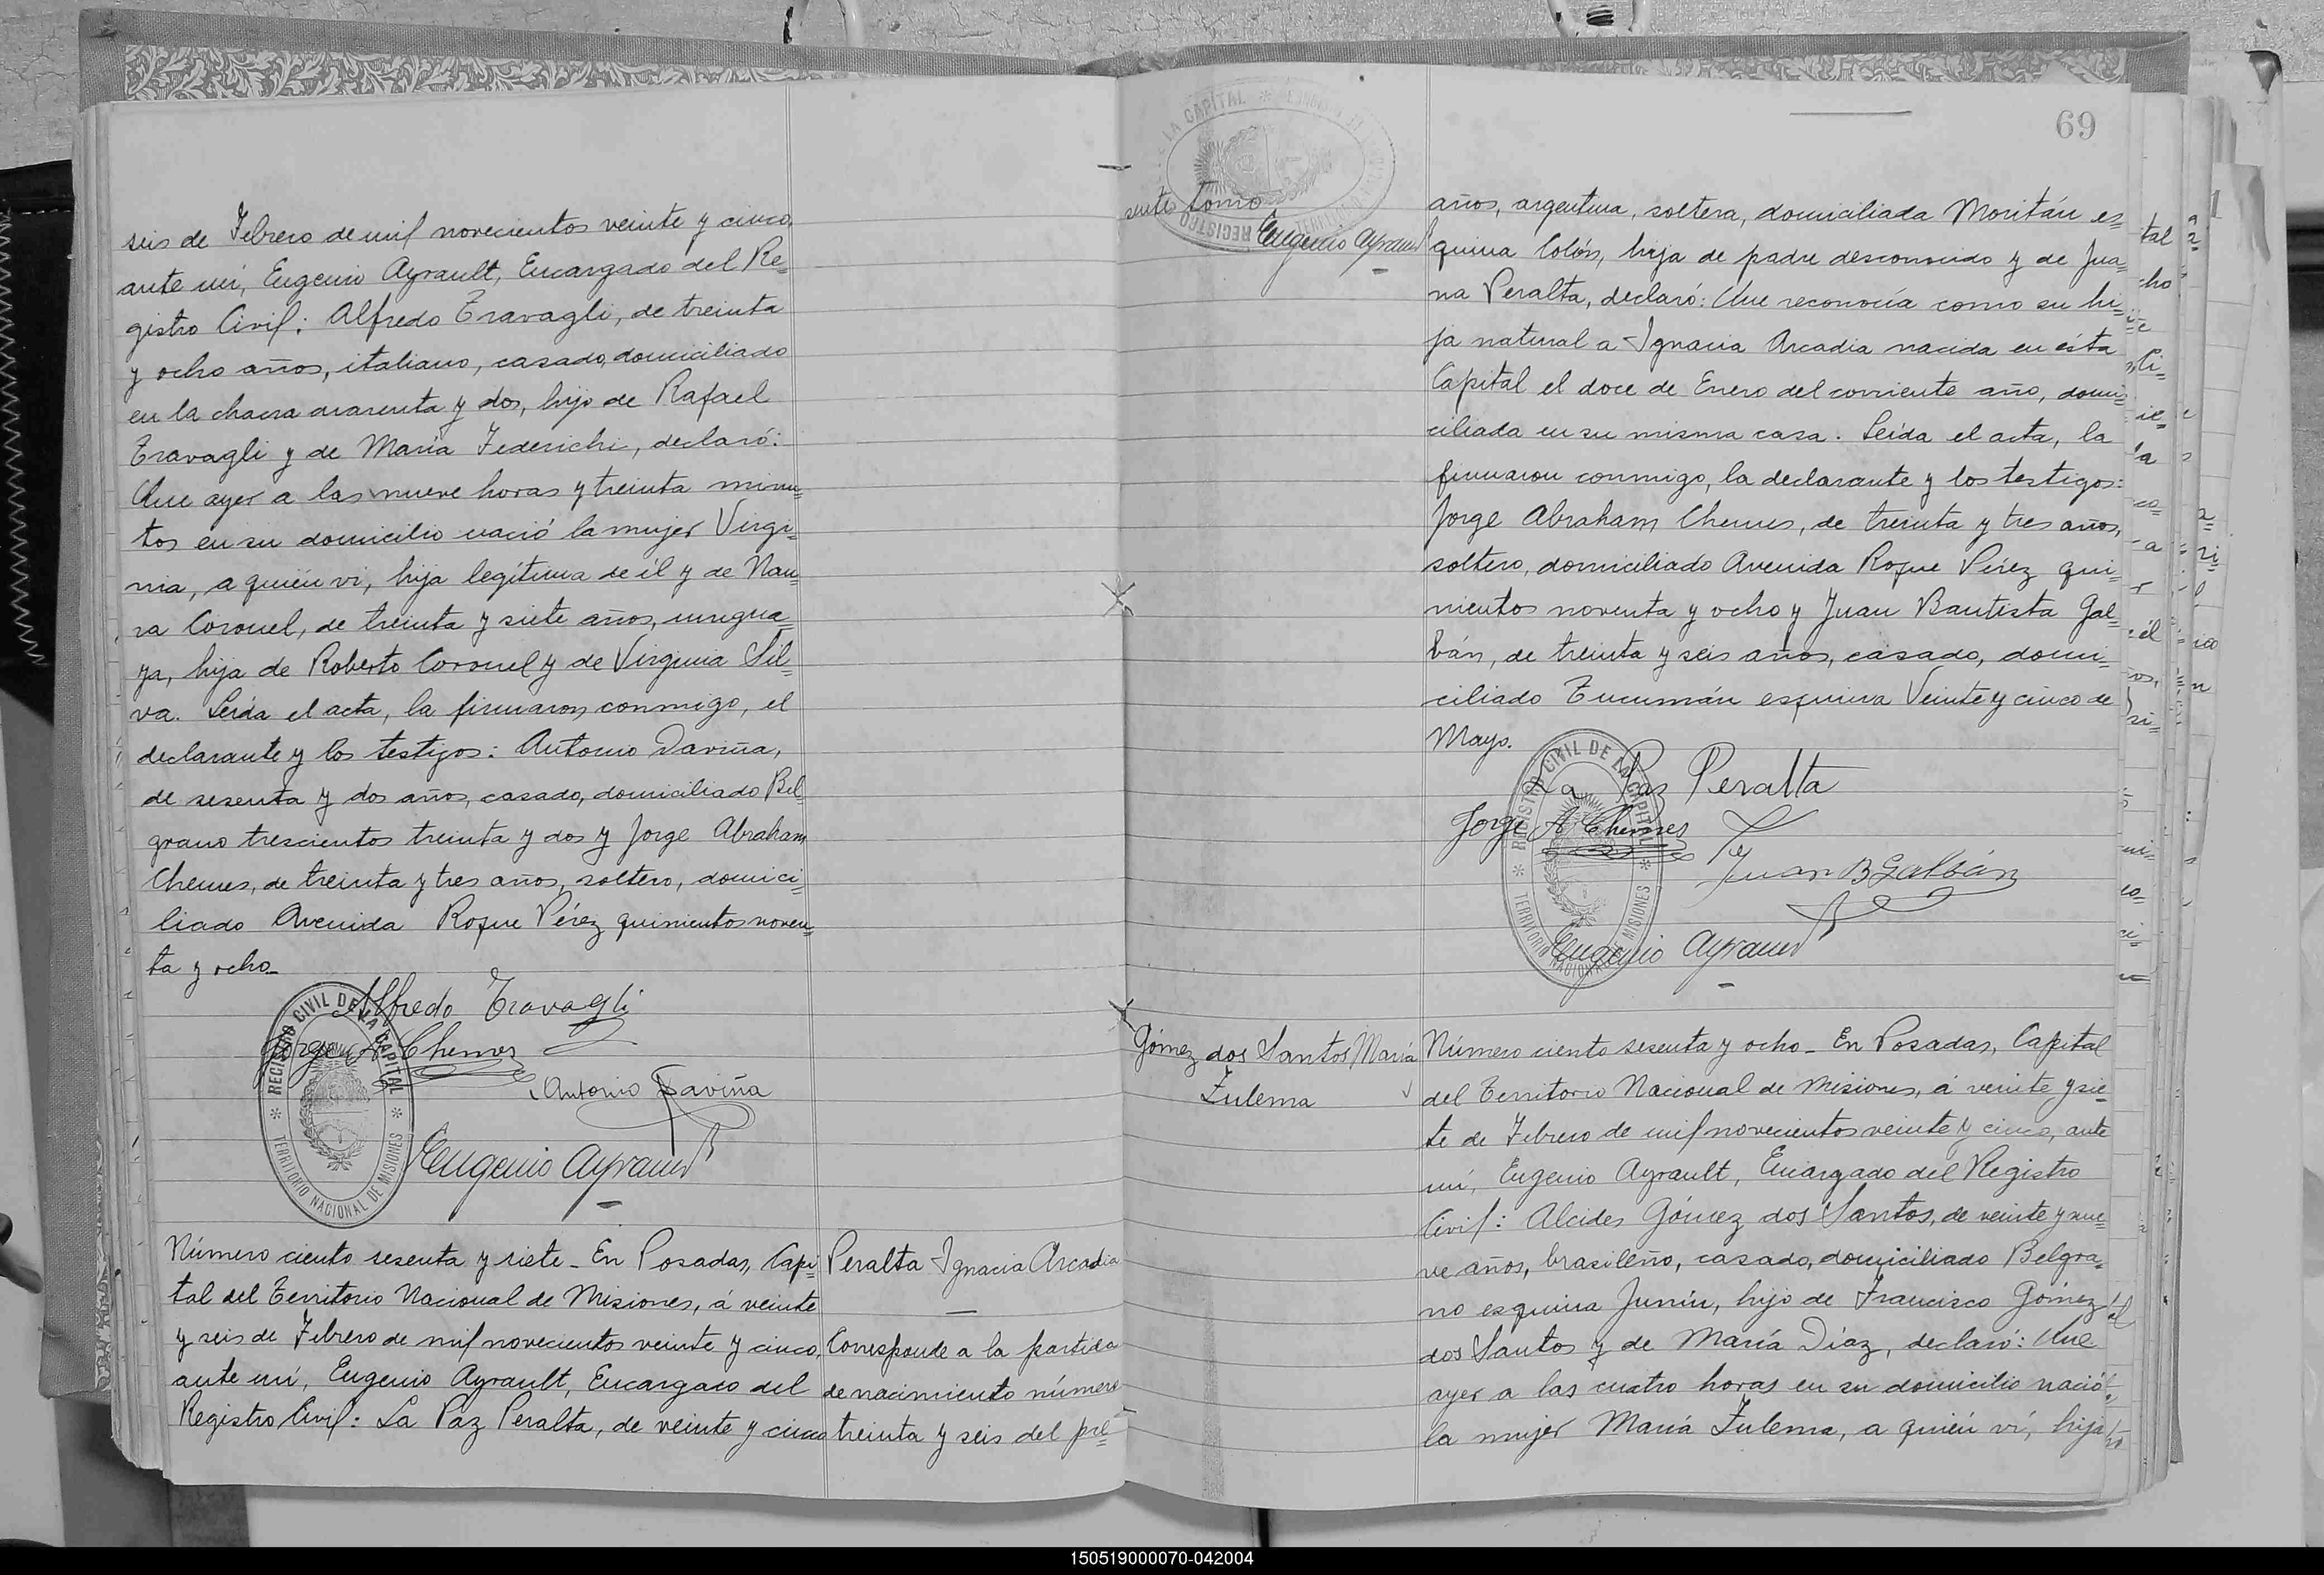 seis de Febrero de mil novecientos veinte y cinco,
ante mí, Eugenio Ayrault, Encargado del Re=
gistro Civil: Alfredo Travagli, de treinta
y ocho años, italiano, casado, domiciliado
en la chacra cuarenta y dos, hijo de Rafael
Travagli y de María Federichi, declaró:
Que ayer a las nueve horas y treinta minu=
tos en su domicilio nació la mujer Virgi=
nia, a quién vi, hija legítima de él y de Nau=
ra Coronel, de treinta y siete años, urugua=
ya, hija de Roberto Coronel y de Virginia Sil=
va. Leída el acta, la firmaron conmigo, el
declarante y los testigos: Antonio Daviña,
de sesenta y dos años, casado, domiciliado Bel=
grano trescientos treinta y dos y Jorge Abraham
Chemes, de treinta y tres años, soltero, domici=
liado Avenida Roque Pérez quinientos noven=
ta y ocho_
Alfredo Travagli
Jorge A Chemes
Antonio Daviña
Eugenio Ayrault
REGISTRO CIVIL DE LA CAPITAL
TERRITORIO NACIONAL DE MISIONES
Número ciento sesenta y siete_ En Posadas, Capi=
tal del Territorio Nacional de Misiones, á veinte
y seis de Febrero de mil novecientos veinte y cinco,
ante mí, Eugenio Ayrault, Encargado del
Registro Civil: La Paz Peralta, de veinte y cinco
Peralta Ignacia Arcadia
Corresponde a la partida
de nacimiento número
treinta y seis del pre=
69
sente tomo
Eugenio Ayrault
años, argentina, soltera, domiciliada Moritán es=
quina Colón, hija de padre desconocido y de Jua=
na Peralta, declaró: Que reconocía como su hi=
ja natural a Ignacia Arcadia nacida en ésta
Capital el doce de Enero del corriente año, domi=
ciliada en su misma casa. Leída el acta, la
firmaron conmigo, la declarante y los testigos:
Jorge Abraham Chemes, de treinta y tres años,
soltero, domiciliado Avenida Roque Pérez qui=
nientos noventa y ocho y Juan Bautista Gal=
bán, de treinta y seis años, casado, domi=
ciliado Tucumán esquina Veinte y cinco de
Mayo.
La Paz Peralta
Jorge A Chemes
Juan B Galbán
Eugenio Ayrault
REGISTRO CIVIL DE LA CAPITAL
TERRITORIO NACIONAL DE MISIONES
Gómez dos Santos María
Zulema
Número ciento sesenta y ocho_ En Posadas, Capital
del Territorio Nacional de Misiones, á veinte y sie=
te de Febrero de mil novecientos veinte y cinco, ante
mí, Eugenio Ayrault, Encargado del Registro
Civil: Alcides Gómez dos Santos, de veinte y nue=
ve años, brasileño, casado, domiciliado Belgra=
no esquina Junín, hijo de Francisco Gómez
dos Santos y de María Díaz, declaró: Que
ayer a las cuatro horas en su domicilio nació
la mujer María Zulema, a quién ví, hija
150519000070-042004